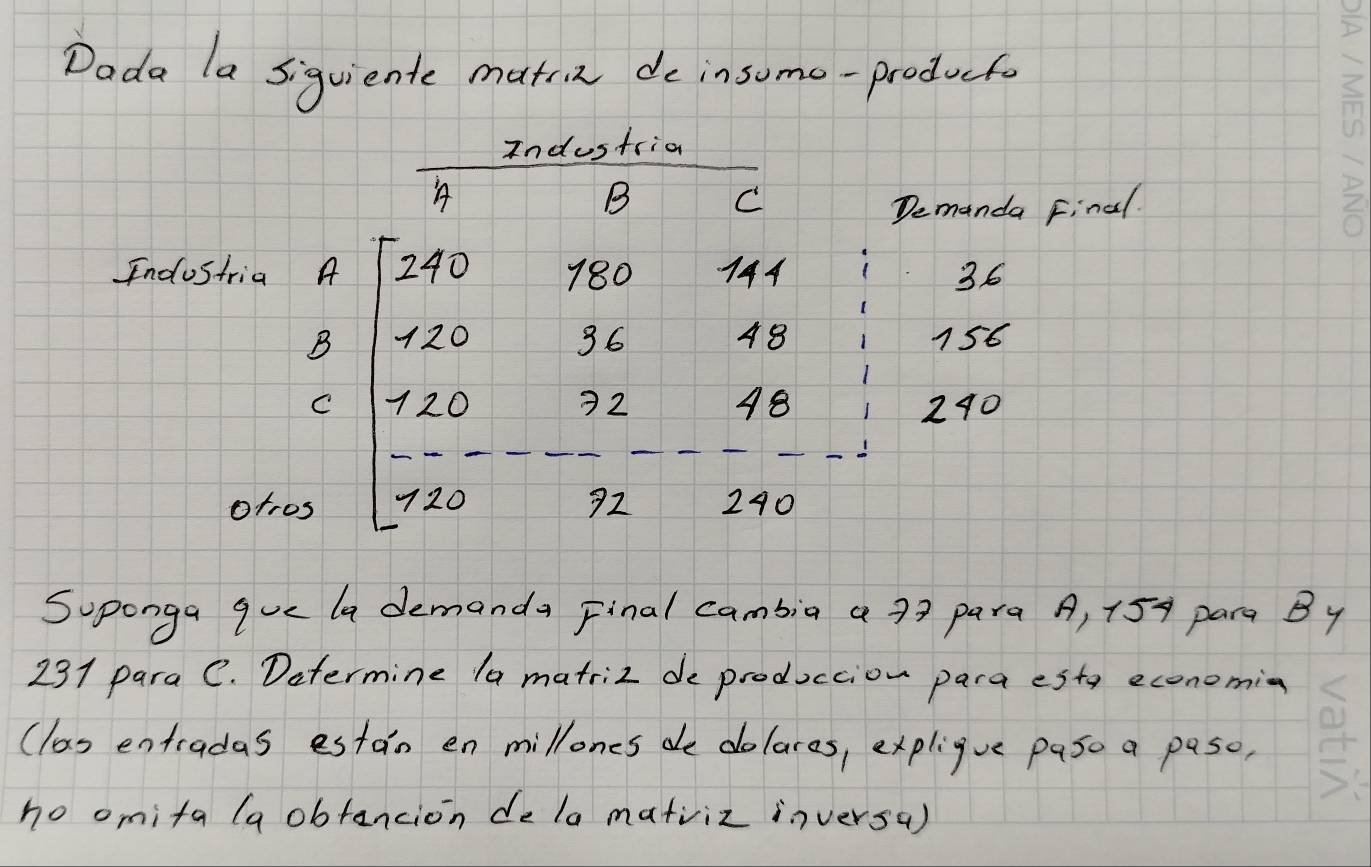 Dada la siguiente matriz de insumo-producto
Industria
A B C Demanda Final.
Industria A 240 180 144 36
B 120 36 48 156
C 120 72 48 240
otros 120 72 240
Suponga que la demanda Final cambia a 77 para A, 154 para B y
231 para C. Determine la matriz de produccion para esta economia
(las entradas están en millones de dolares, explique paso a paso,
no omita la obtención de la matriz inversa)
DIA / MES / AÑO
vatix